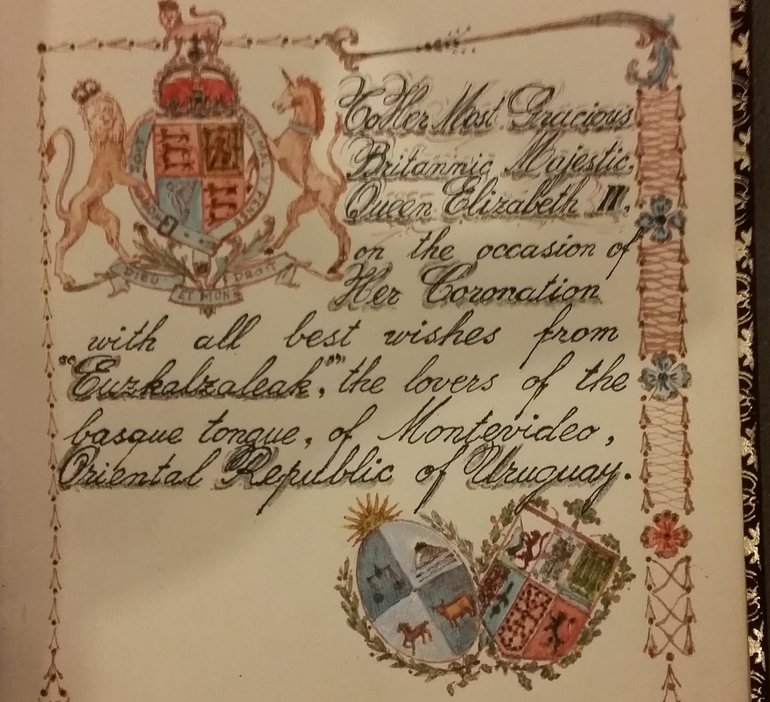 To Her Most Gracious
Britannic Majestic,
Queen Elizabeth II,
on the occasion of
Her Coronation
with all best wishes from
"Euzkalzaleak", the lovers of the
basque tongue, of Montevideo,
Oriental Republic of Uruguay.
DIEU ET MON DROIT